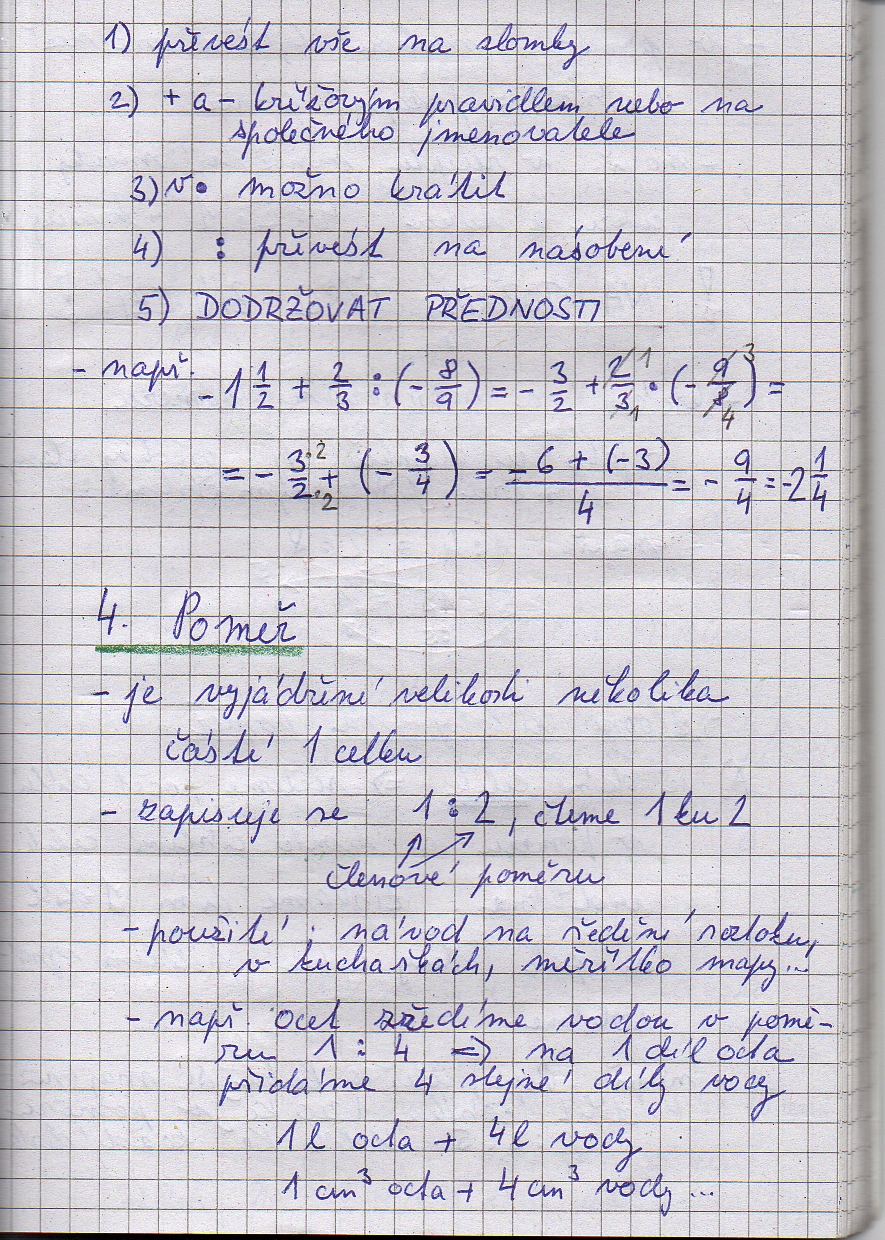 1) převést vše na zlomky
2) + a - křížovým pravidlem nebo na
společného jmenovatele
3) v • možno krátit
4) : převést na násobení
5) DODRŽOVAT PŘEDNOSTI
- např. -1 1/2 + 2/3 : (- 8/9) = - 3/2 + 2/3 • (- 9/8) =
= - 3·2/2·2 + (- 3/4) = -6 + (-3)/4 = - 9/4 = -2 1/4
4. Poměr
- je vyjádření velikosti několika
částí 1 celku
- zapisuje se 1 : 2, čteme 1 ku 2
členové poměru
- použití : návod na ředění roztoku,
v kuchařkách, měřítko mapy...
- např. ocet zředíme vodou v pomě-
ru 1 : 4 => na 1 díl octa
přidáme 4 stejné díly vody
1 l octa + 4 l vody
1 cm³ octa + 4 cm³ vody ...